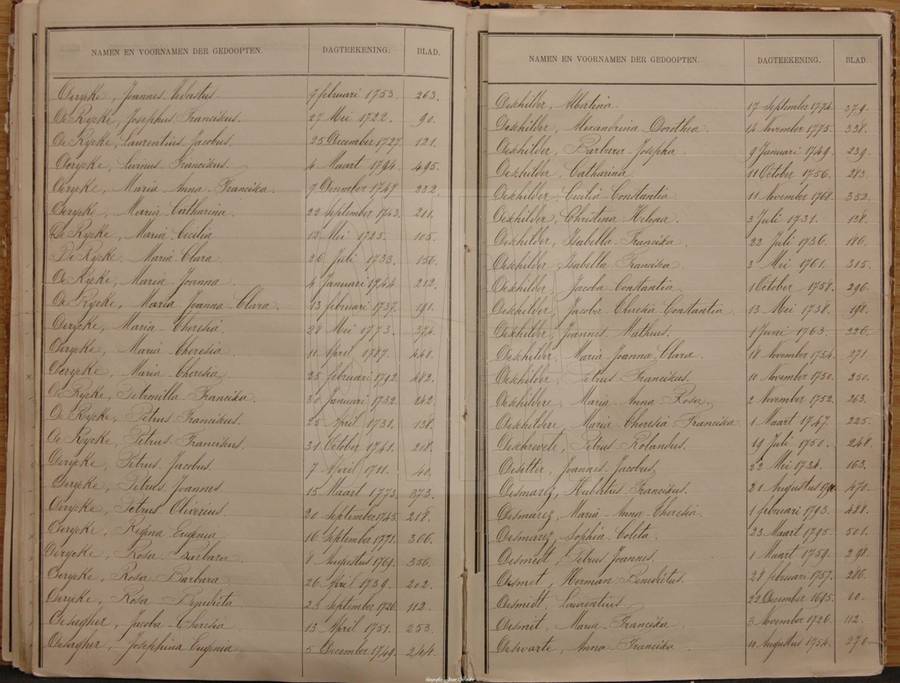 NAMEN EN VOORNAMEN DER GEDOOPTEN. DAGTEEKENING. BLAD.
Derycke, Joannes 9 februari 1753. 263.
De Rycke, Josephus Franciskus. 27 Mei 1722. 90.
De Rycke, Laurentius Jacobus. 25 December 1727. 121.
Derycke, Livinus Franciskus. 4 Maart 1794. 495.
Derycke, Maria Anna Franciska. 9 1747 222.
Derycke, Maria Catharina. 22 September 1743. 211.
De Rycke, Maria Cecilia 12 Mei 1725. 105.
De Rycke, Maria Clara. 26 Juli 1733. 156.
De Rycke, Maria Joanna. 4 Januari 1744. 212.
De Rycke, Maria Joanna Clara. 13 februari 1737. 191.
Derycke, Maria Theresia 28 Mei 1773. 374.
Derycke, Maria Theresia. 11 April 1787. 448.
Derycke, Maria Theresia. 25 februari 1792. 482.
De Rycke, Petronilla Franciska. 30 Januari 1732. 142.
De Rycke, Petrus Franciskus. 25 April 1731. 138.
De Rycke, Petrus Franciskus. 31 October 1741. 218.
Derycke, Petrus Jacobus. 7 April 1711. 40.
Derycke, Petrus Joannes. 15 Maart 1773. 373.
Derycke, Petrus Oliverius. 20 September 1745. 218.
Derycke, Regina Eugenia 16 September 1771. 366.
Derycke, Rosa Barbara. 8 Augustus 1769. 356.
Derycke, Rosa Barbara. 26 April 1739. 202.
Derycke, Rosa Benedicta. 23 September 1726. 112.
Desagher, Jacoba Theresia. 13 April 1751. 253.
Desagher, Josephina Eugenia. 5 December 1749. 244.
NAMEN EN VOORNAMEN DER GEDOOPTEN. DAGTEEKENING. BLAD.
Deschilder, Albertina. 17 September 1774. 379.
Deschilder, Alexandrina Dorothea. 14 November 1775. 328.
Deschilder, Barbara Josepha. 9 Januari 1749. 239.
Deschilder, Catharina. 11 October 1756. 283.
Deschilder, Cecilia Constantia. 11 November 1768. 352.
Deschilder, Christina Helena. 3 Juli 1731. 138.
Deschilder, Isabella Franciska. 22 Juli 1736. 186.
Deschilder, Isabella Franciska. 3 Mei 1761. 315.
Deschilder, Jacoba Constantia. 1 October 1758. 296.
Deschilder, Jacoba Theresia Constantia. 13 Mei 1738. 198.
Deschilder, Joannes Matheus. 1 Juni 1763. 326.
Deschilder, Maria Joanna Clara. 18 November 1754. 271.
Deschilder, Petrus Franciskus. 10 November 1750. 250.
Deschildere, Maria Anna Rosa. 2 November 1752. 263.
Deschildere, Maria Theresia Franciska. 1 Maart 1747. 225.
Petrus Rolandus. 19 Juli 1750. 248.
Desitter, Joannes Jacobus. 22 Mei 1734. 163.
Desmarez, Hubertus Franciskus. 21 Augustus 470.
Desmarez, Maria Anna Theresia. 1 februari 1793. 488.
Desmarez, Sophia Coleta. 23 Maart 1795. 501.
Desmedt, Petrus Joannes. 1 Maart 1759. 298.
Desmet, Herman Benedictus. 28 februari 1757. 286.
Desmedt, Laurentius. 22 December 1695. 10.
Desmit, Maria Franciska. 3 November 1726. 112.
Deswarte, Anna Franciska. 10 Augustus 1754. 270.